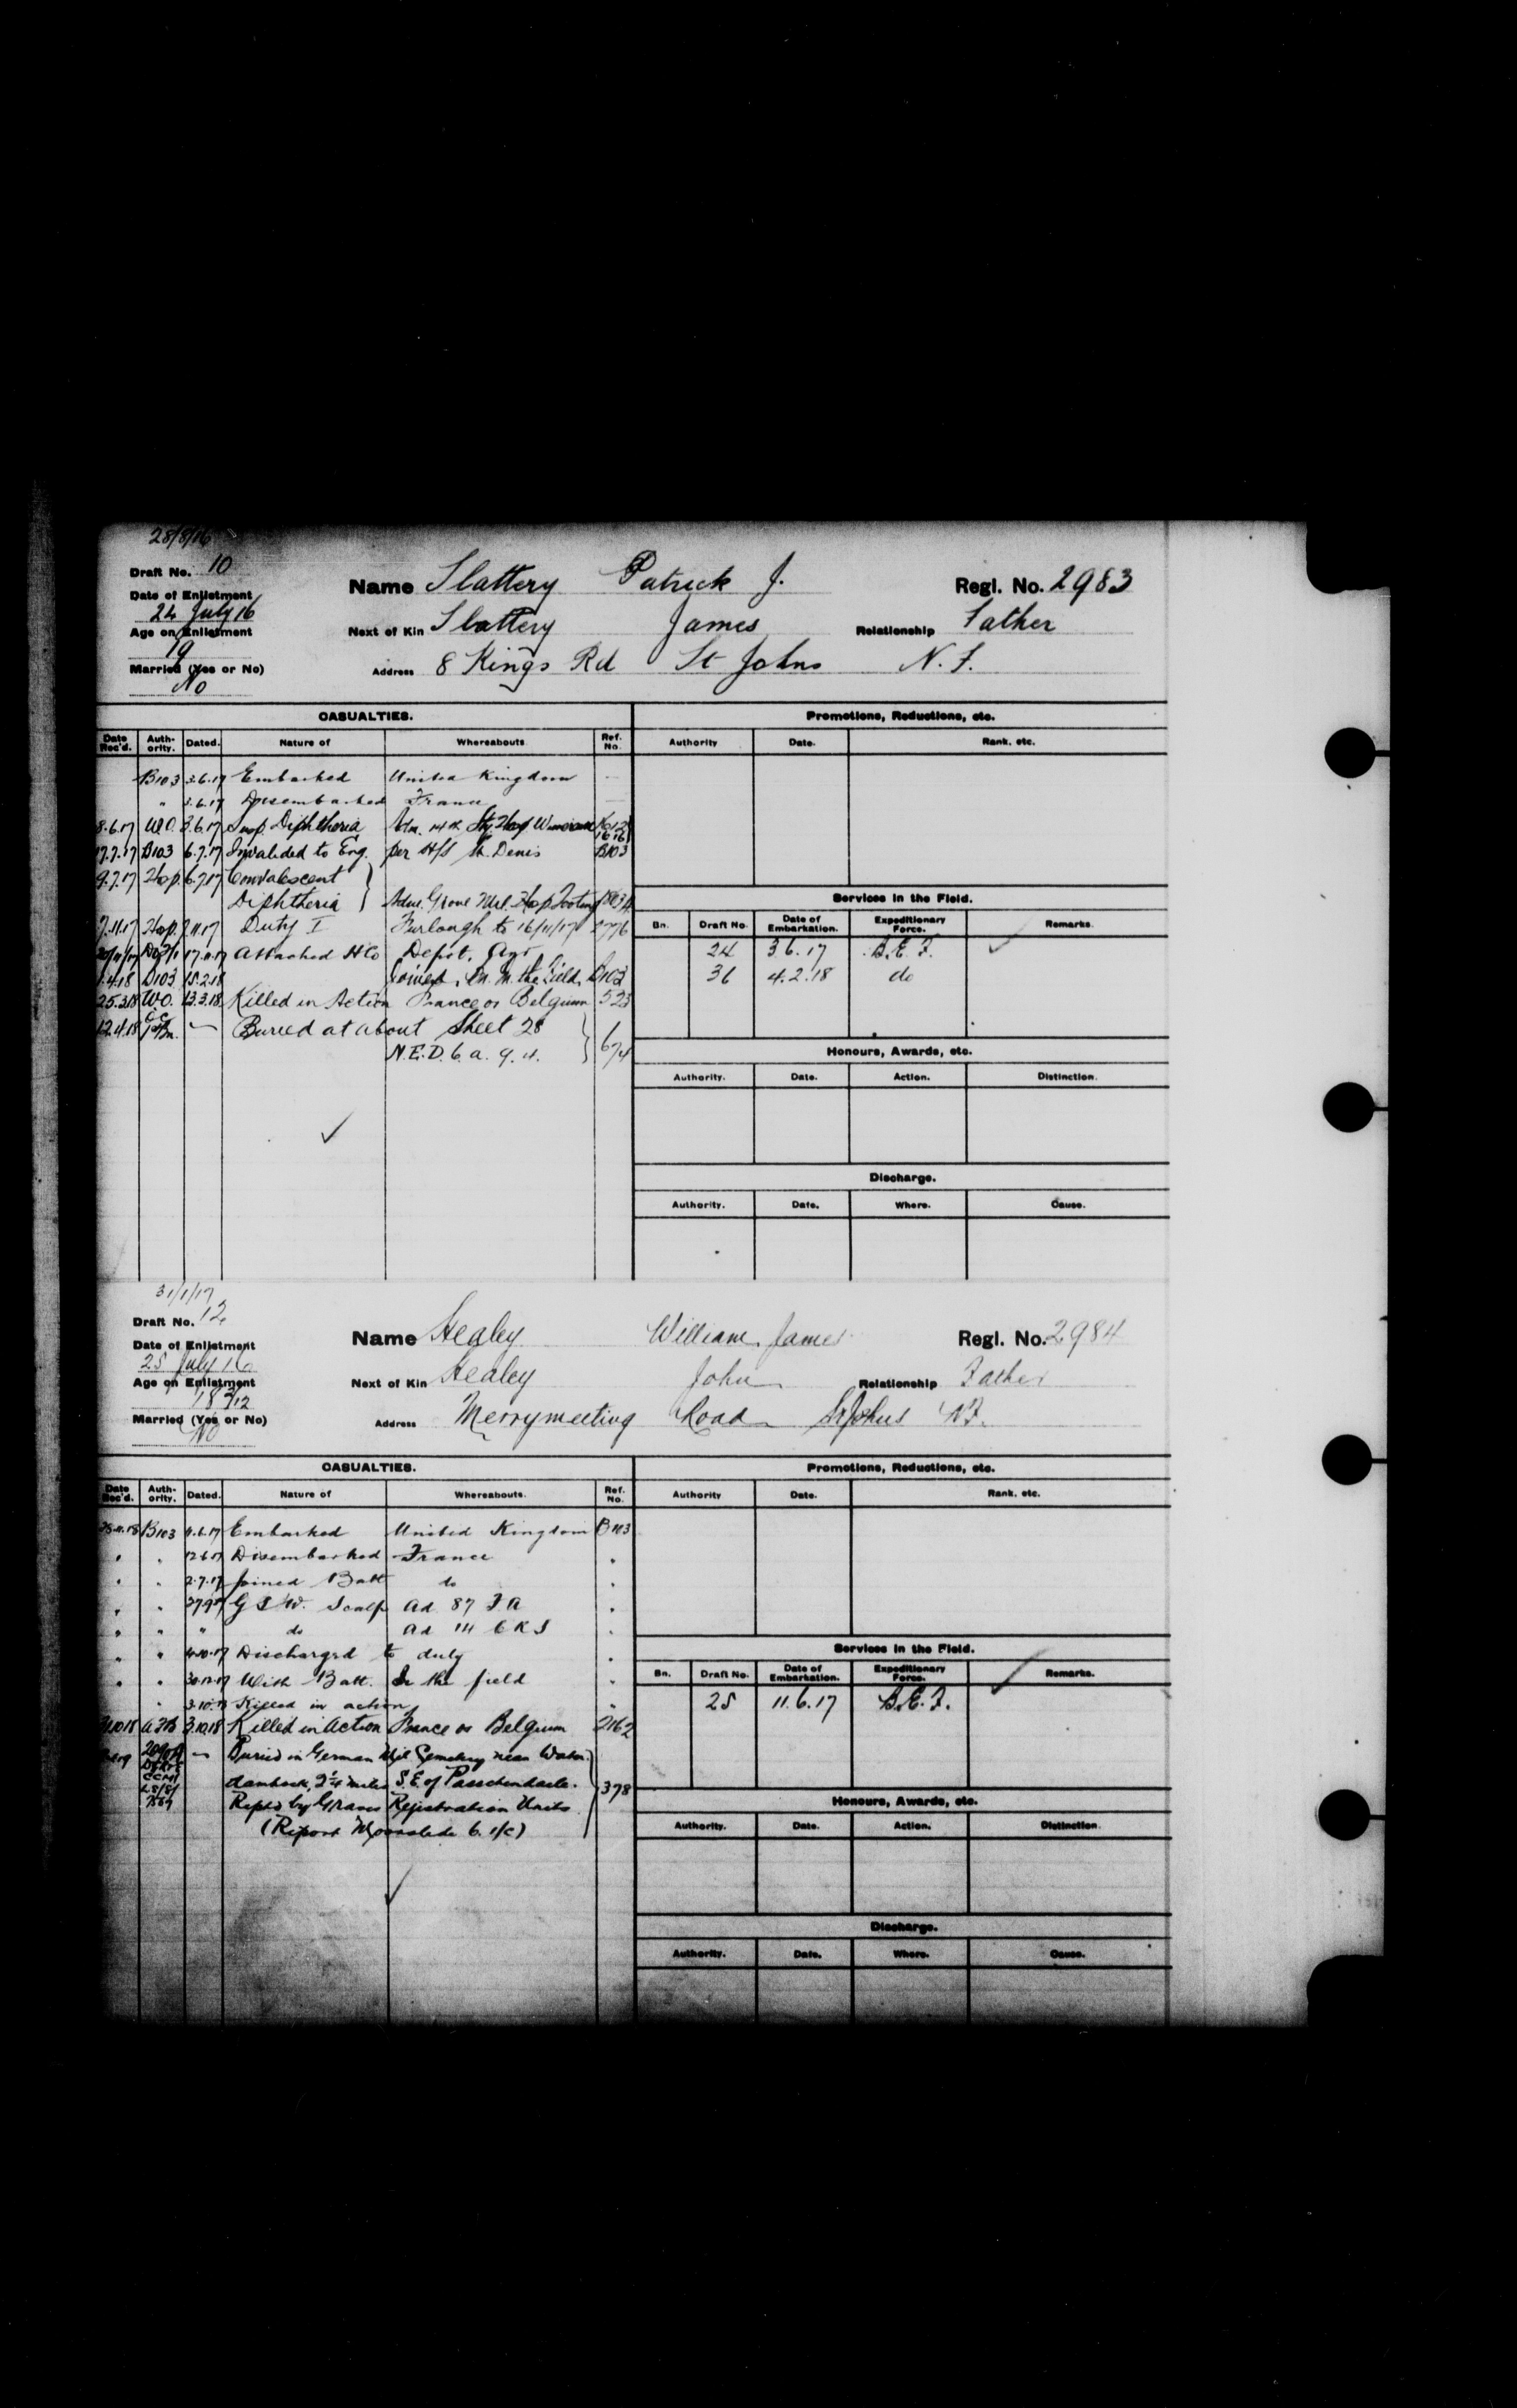 28/8/16
Draft No. 10
Date of Enlistment
24 July 16
Age on Enlistment
19
Married (Yes or No)
No
Name Slattery Patrick J. Regl. No. 2983
Next of Kin Slattery James Relationship Father
Address 8 Kings Rd St Johns N.F.
CASUALTIES. Promotions, Reductions, etc.
Date Rec'd. Auth-ority. Dated. Nature of Whereabouts. Ref. No. Authority Date. Rank, etc.
B103 3.6.17 Embarked United Kingdom —
" 3.6.17 Disembarked France —
8.6.17 W.O. 3.6.17 Susp. Diphtheria Adm. 14th Sty Hosp
17.7.17 B103 6.7.17 Invalided to Eng. per H/S St. Denis B103
9.7.17 Hosp. 6.7.17 Convalescent
Diphtheria Adm. Grove Mil. Hosp Tooting
7.11.17 Hosp. 7.11.17 Duty I Furlough to 16/11/17 2776
17.11.17 Attached H Co Depot, Ayr
1.4.18 B103 15.2.18 Joined Bn. in the Field B103
25.3.18 W.O. 13.3.18 Killed in Action France or Belgium 523
12.4.18 — Buried at about Sheet 28
N.E. D. 6. a. 9. 4. 674
Services in the Field.
Bn. Draft No. Date of Embarkation. Expeditionary Force. Remarks.
24 3.6.17 B.E.F.
36 4.2.18 do
Honours, Awards, etc.
Authority. Date. Action. Distinction.
Discharge.
Authority. Date. Where. Cause.
31/1/17
Draft No. 12
Date of Enlistment
25 July 16
Age on Enlistment
18 2/12
Married (Yes or No)
No
Name Healey William James Regl. No. 2984
Next of Kin Healey John Relationship Father
Address Merrymeeting Road St Johns N.F.
CASUALTIES. Promotions, Reductions, etc.
Date Rec'd. Auth-ority. Dated. Nature of Whereabouts. Ref. No. Authority Date. Rank, etc.
28.11.18 B103 11.6.17 Embarked United Kingdom B103
" " 12.6.17 Disembarked France "
" " 2.7.17 Joined Batt do "
" " 27.9.17 G S W. Scalp Ad 87 F A "
" " " do Ad "
" " 4.10.17 Discharged to duty "
" " 30.12.17 With Batt. In the field "
" Killed in action "
3.10.18 Killed in Action France or Belgium 2162
— Buried in German Mil. Cemetery near Water-
damhoek, 2¼ miles S.E. of Passchendaele. 378
Reptd by Graves Registration Units
(Report Moorslede 6. 1/c)
Services in the Field.
Bn. Draft No. Date of Embarkation. Expeditionary Force. Remarks.
25 11.6.17 B.E.F.
Honours, Awards, etc.
Authority. Date. Action. Distinction.
Discharge.
Authority. Date. Where. Cause.